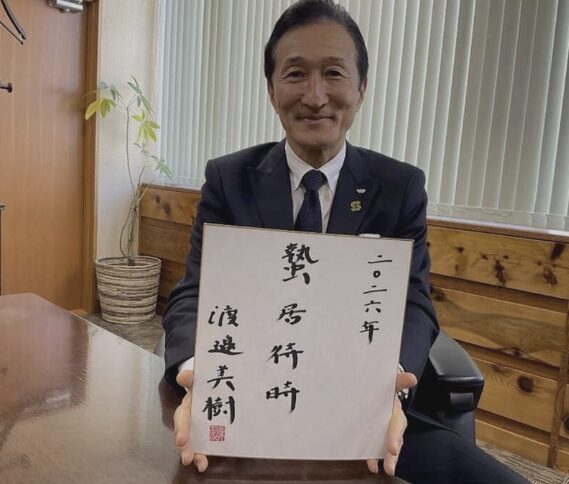 二〇二六年
蟄居待時
渡邉美樹